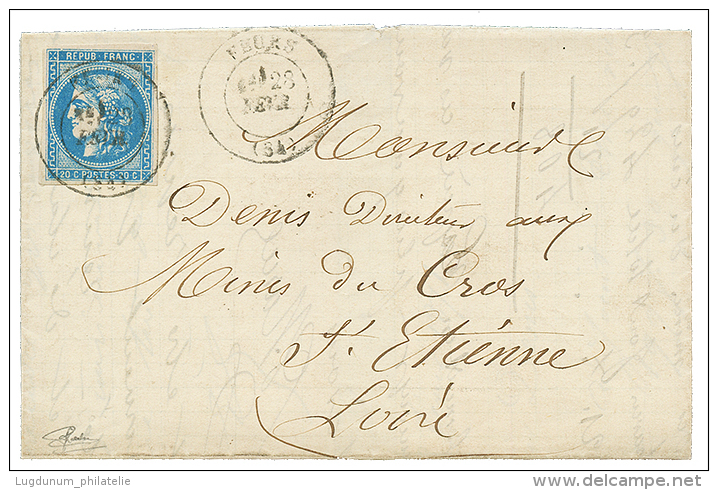 REPUB. FRANC.
20 C. POSTES. 20 C.
FEURS
28
FEVR
(84)
Monsieur
Denis Directeur aux
Mines du Cros
St. Etienne
Loire
Lugdunum_philatelie
www.delcampe.net